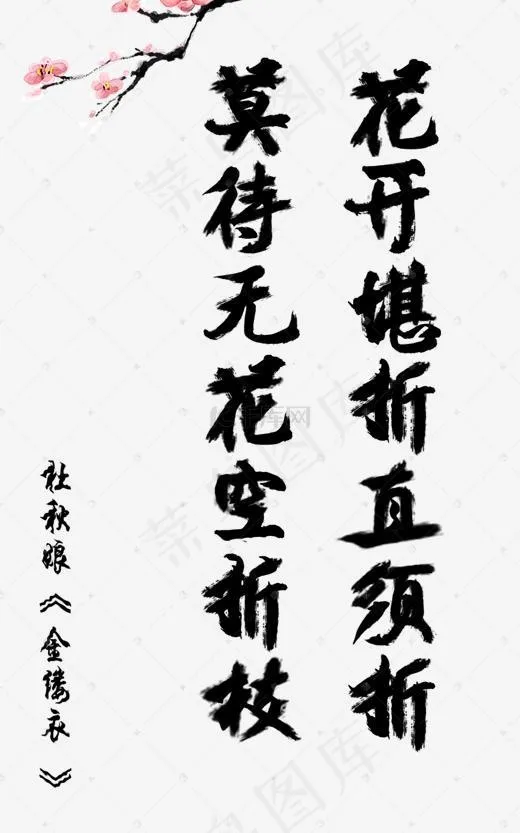 花开堪折直须折
莫待无花空折枝
杜秋娘《金缕衣》